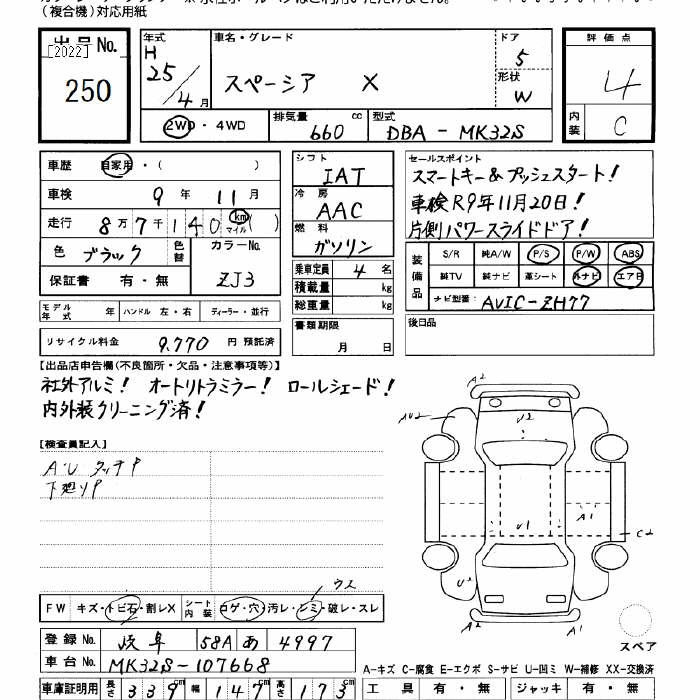 （複合機）対応用紙
出品No.
[2022]
250
年式
H
25/4月
車名・グレード
スペーシア X
ドア
5
形状
W
評価点
4
内装
C
2WD・4WD
排気量
660 cc
型式
DBA-MK32S
車歴 自家用・( )
車検 9年 11月
走行 8万7千140 km マイル ( )
色 ブラック
色替
カラーNo.
ZJ3
保証書 有・無
シフト
IAT
冷房
AAC
燃料
ガソリン
乗車定員 4名
積載量 kg
総重量 kg
セールスポイント
スマートキー&プッシュスタート!
車検R9年11月20日!
片側パワースライドドア!
装備品
S/R 純A/W P/S P/W ABS
純TV 純ナビ 革シート 外ナビ エアB
ナビ型番: AVIC-ZH77
モデル年式 年 ハンドル 左・右 ディーラー・並行
書類期限
月 日
後日品
リサイクル料金 9,770 円 預託済
【出品店申告欄(不良箇所・欠品・注意事項等)】
社外アルミ! オートリトラミラー! ロールシェード!
内外装クリーニング済!
【検査員記入】
A・U タッチP
下廻りP
A2
AU2
U2
U1
A1
C2
U2
A2
スペア
ウス
FW キズ・トビ石・割レX シート内装 コゲ・穴・汚レ・シミ・破レ・スレ
登録No. 岐阜 58A あ 4997
車台No. MK32S-107668
A-キズ C-腐食 E-エクボ S-サビ U-凹ミ W-補修 XX-交換済
車庫証明用 長さ 339cm 幅 147cm 高さ 173cm
工具 有・無 ジャッキ 有・無